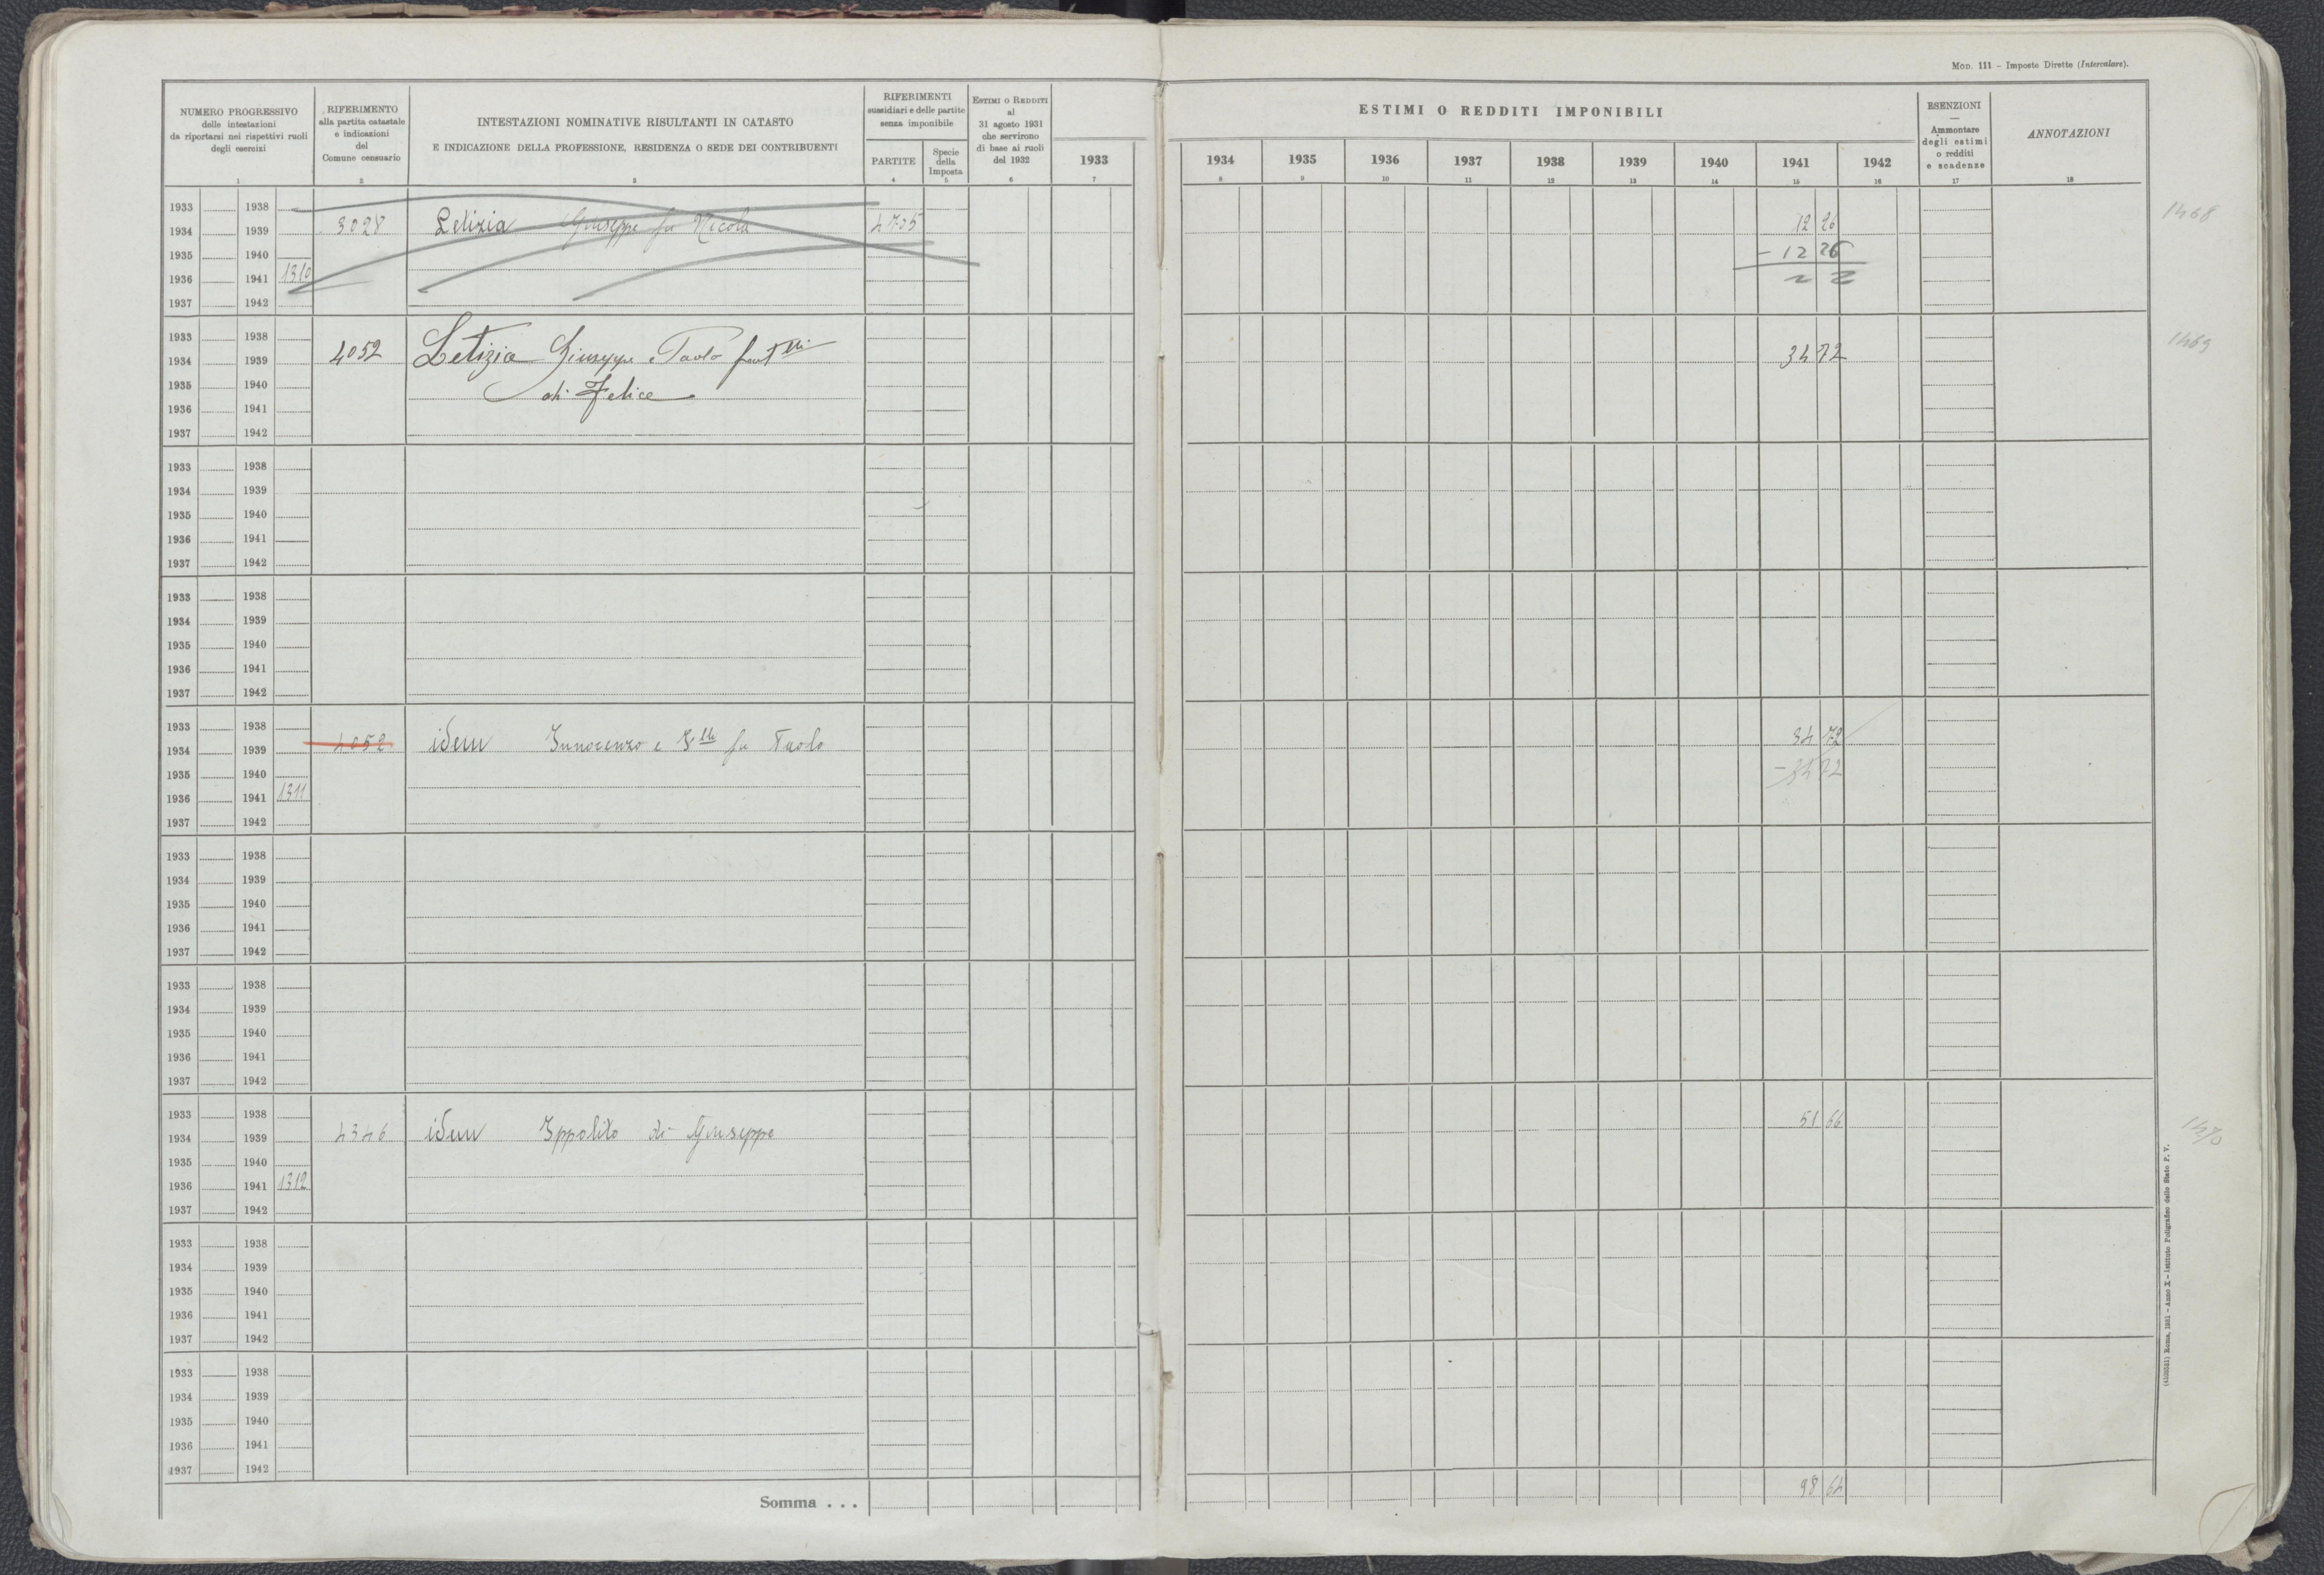 Mod. 111 – Imposte Dirette (Intercalare).
NUMERO PROGRESSIVO
delle intestazioni
da riportarsi nei rispettivi ruoli
degli esercizi
1
RIFERIMENTO
alla partita catastale
e indicazioni
del
Comune censuario
2
INTESTAZIONI NOMINATIVE RISULTANTI IN CATASTO
E INDICAZIONE DELLA PROFESSIONE, RESIDENZA O SEDE DEI CONTRIBUENTI
3
RIFERIMENTI
sussidiari e delle partite
senza imponibile
PARTITE
4
Specie
della
Imposta
5
Estimi o Redditi
al
31 agosto 1931
che servirono
di base ai ruoli
del 1932
6
1933
7
ESTIMI O REDDITI IMPONIBILI
1934 1935 1936 1937 1938 1939 1940 1941 1942
8 9 10 11 12 13 14 15 16
ESENZIONI
—
Ammontare
degli estimi
o redditi
e scadenze
17
ANNOTAZIONI
18
1933 1938
1934 1939 3028 Letizia Giuseppe fu Nicola 4705 12 26 1468
1935 1940 – 12 26
1936 1941 1310
1937 1942
1933 1938
1934 1939 4052 Letizia Giuseppe e Paolo 34 72 1469
1935 1940 di Felice
1936 1941
1937 1942
1933 1938
1934 1939
1935 1940
1936 1941
1937 1942
1933 1938
1934 1939
1935 1940
1936 1941
1937 1942
1933 1938
1934 1939 4052 idem Innocenzo e F.lli fu Paolo 34 72
1935 1940 – 34 72
1936 1941 1311
1937 1942
1933 1938
1934 1939
1935 1940
1936 1941
1937 1942
1933 1938
1934 1939
1935 1940
1936 1941
1937 1942
1933 1938
1934 1939 4346 idem Ippolito di Giuseppe 51 66 1470
1935 1940
1936 1941 1312
1937 1942
1933 1938
1934 1939
1935 1940
1936 1941
1937 1942
1933 1938
1934 1939
1935 1940
1936 1941
1937 1942
Somma . . . 98 64
Roma, 1931 – Anno X – Istituto Poligrafico dello Stato P. V.